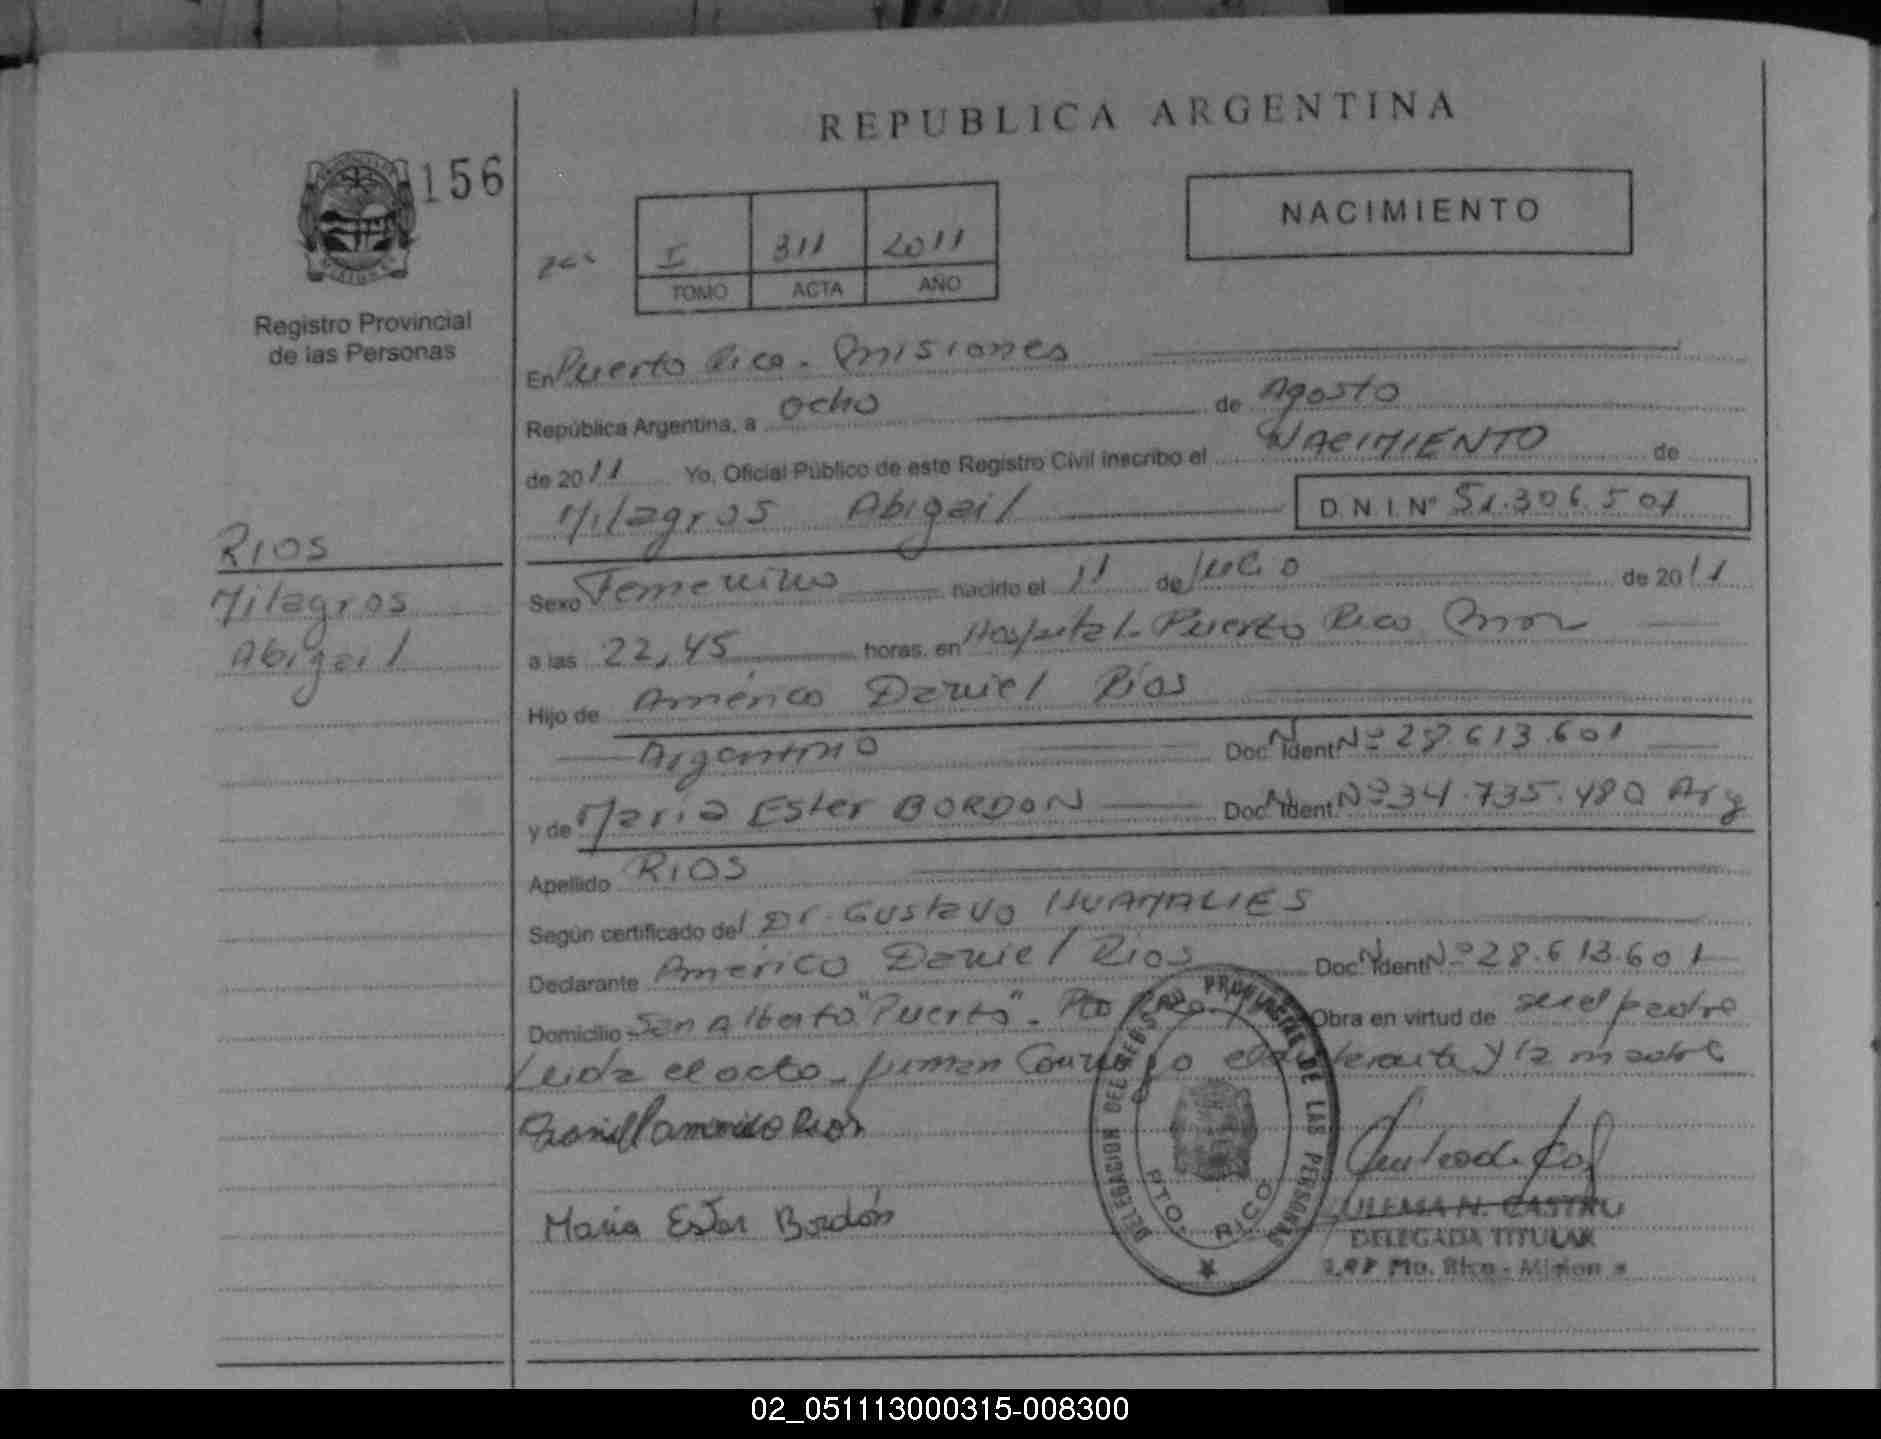 REPUBLICA ARGENTINA
156
NACIMIENTO
I 311 2011
TOMO ACTA AÑO
Registro Provincial
de las Personas
En Puerto Rico - Misiones
República Argentina, a ocho de Agosto
de 2011 Yo, Oficial Público de este Registro Civil inscribo el NACIMIENTO de
Milagros Abigail D.N.I. Nº 51.306.501
RIOS
Milagros
Abigail
Sexo Femenino nacido el 11 de Julio de 2011
a las 22,45 horas, en Hospital - Puerto Rico
Hijo de Américo Daniel Ríos
Argentino Doc. Ident. Nº 28.613.601
y de Maria Ester BORDON Doc. Ident. Nº 34.735.480 Arg
Apellido RIOS
Según certificado del Dr. Gustavo HUAMALIES
Declarante Américo Daniel Rios Doc. Ident. Nº 28.613.601
Domicilio San Alberto "Puerto" - Pto Rico Obra en virtud de ser el padre
Leida el acta - firman Conmigo el declarante y la madre
Maria Ester Bordón
DELEGACION DEL REG. PROVINCIAL DE LAS PERSONAS
PTO. RICO
ZULEMA N. CASTRO
DELEGADA TITULAR
Pto. Rico - Misiones
02_051113000315-008300